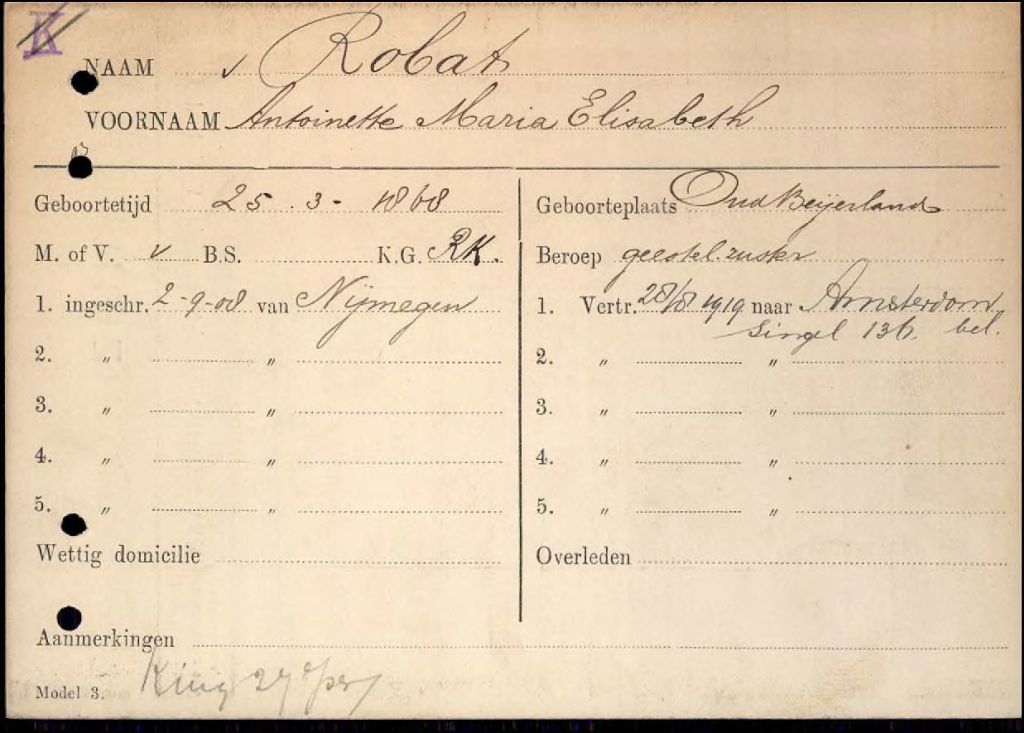 K
NAAM v Robat
VOORNAAM Antoinette Maria Elisabeth
Geboortetijd 25.3-1868
M. of V. v B.S. K.G. RK.
1. ingeschr. 2-9-08 van Nijmegen
2. „ „
3. „ „
4. „ „
5. „ „
Wettig domicilie
Geboorteplaats Oud Beijerland
Beroep geestel. zuster
1. Vertr. 28/8 1919 naar Amsterdam
Singel 136. bel.
2. „ „
3. „ „
4. „ „
5. „ „
Overleden
Aanmerkingen
Model 3.